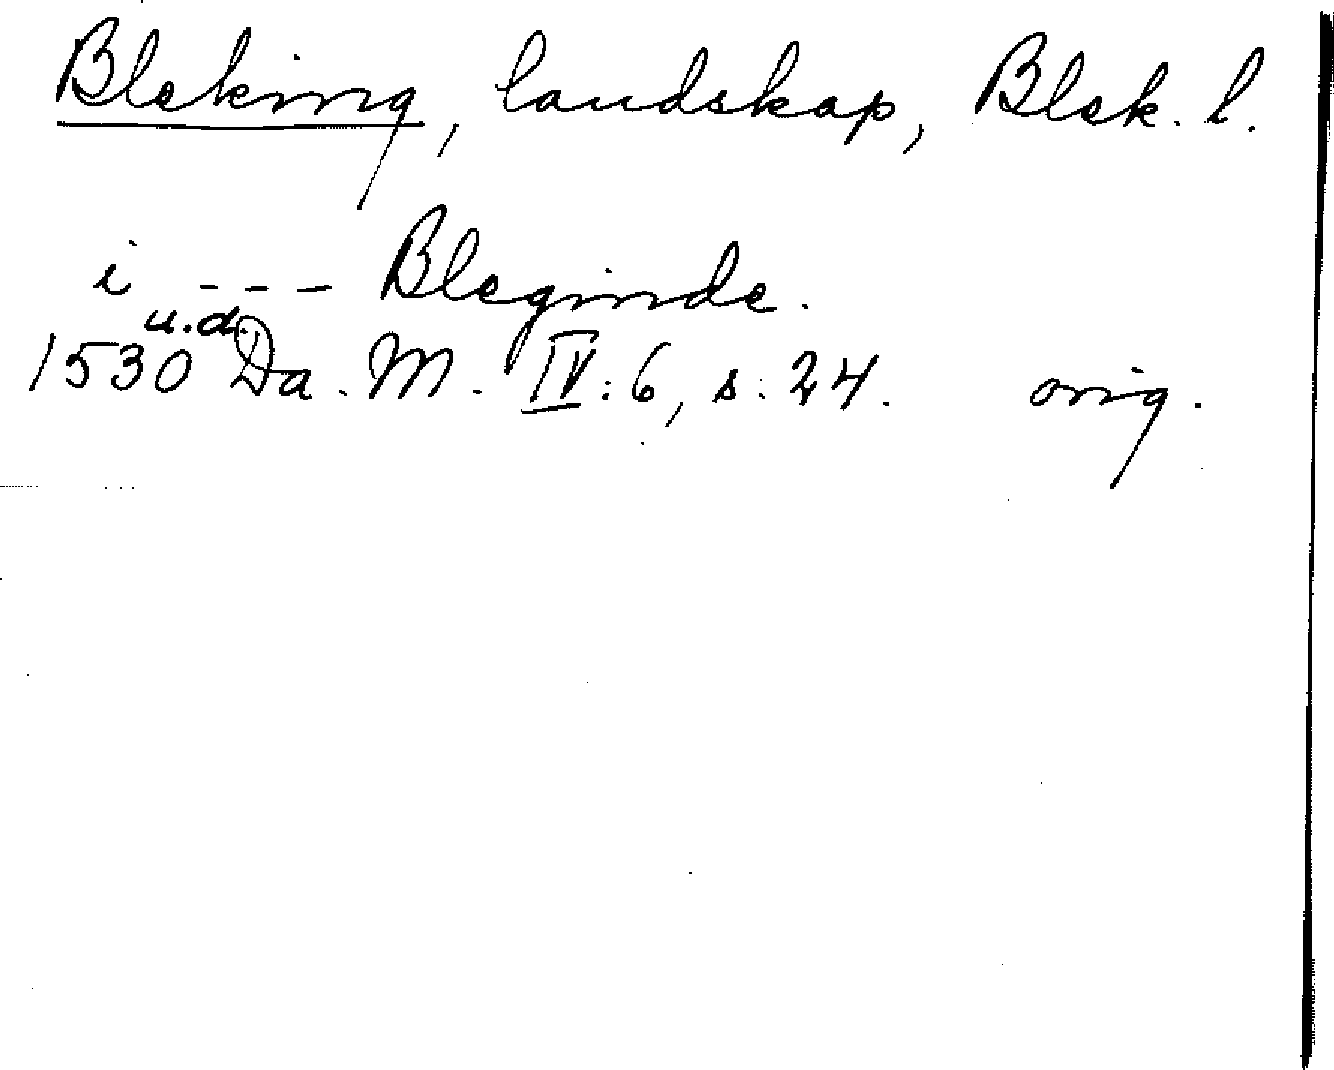 Bleking, landskap, Blek. l.
i --- Bleginde.
u.d.
1530 Da. M. IV:6, s. 24. orig.